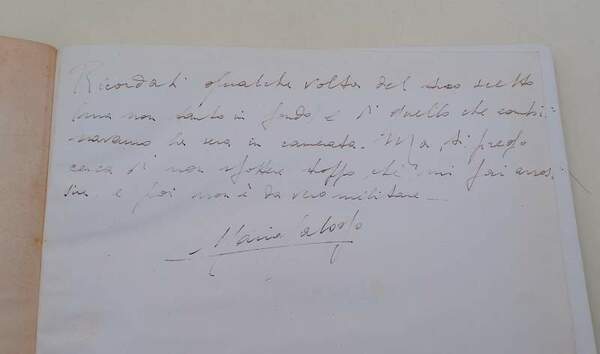 Ricordati qualche volta del tuo
ma non tanto in fondo e di quello che combi-
navamo la sera in camerata. Ma ti prego
cerca di non sfottere troppo che mi fai arros-
sire e poi non è da vero militare...
Mario